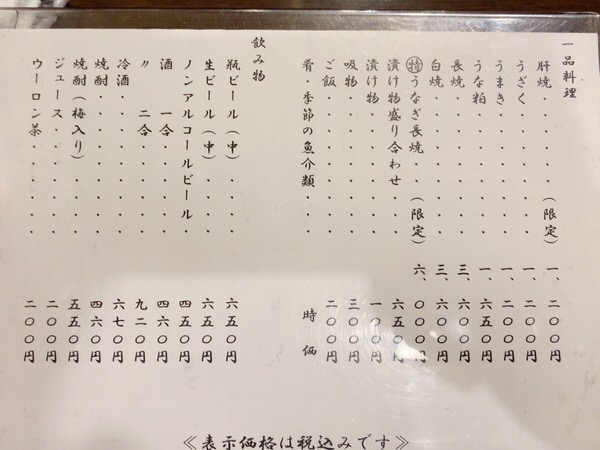 一品料理
肝焼・・・・・(限定) 一、二〇〇円
うざく・・・・・・・ 一、二〇〇円
うまき・・・・・・・ 一、二〇〇円
うな粕・・・・・・・ 一、六五〇円
長焼・・・・・・・・ 三、六〇〇円
白焼・・・・・・・・ 三、六〇〇円
㊕うなぎ長焼・(限定) 六、〇〇〇円
漬け物盛り合わせ・・ 六五〇円
漬け物・・・・・・・ 一〇〇円
吸物・・・・・・・・ 三〇〇円
ご飯・・・・・・・・ 二〇〇円
肴・季節の魚介類・・ 時価
飲み物
瓶ビール(中)・・・ 六五〇円
生ビール(中)・・・ 六五〇円
ノンアルコールビール・ 四五〇円
酒 一合・・・・・ 四六〇円
〃 二合・・・・・ 九二〇円
冷酒・・・・・・・ 六七〇円
焼酎・・・・・・・ 四六〇円
焼酎(梅入り)・・・ 五五〇円
ジュース・・・・・・ 二〇〇円
ウーロン茶・・・・・ 二〇〇円
≪表示価格は税込みです≫